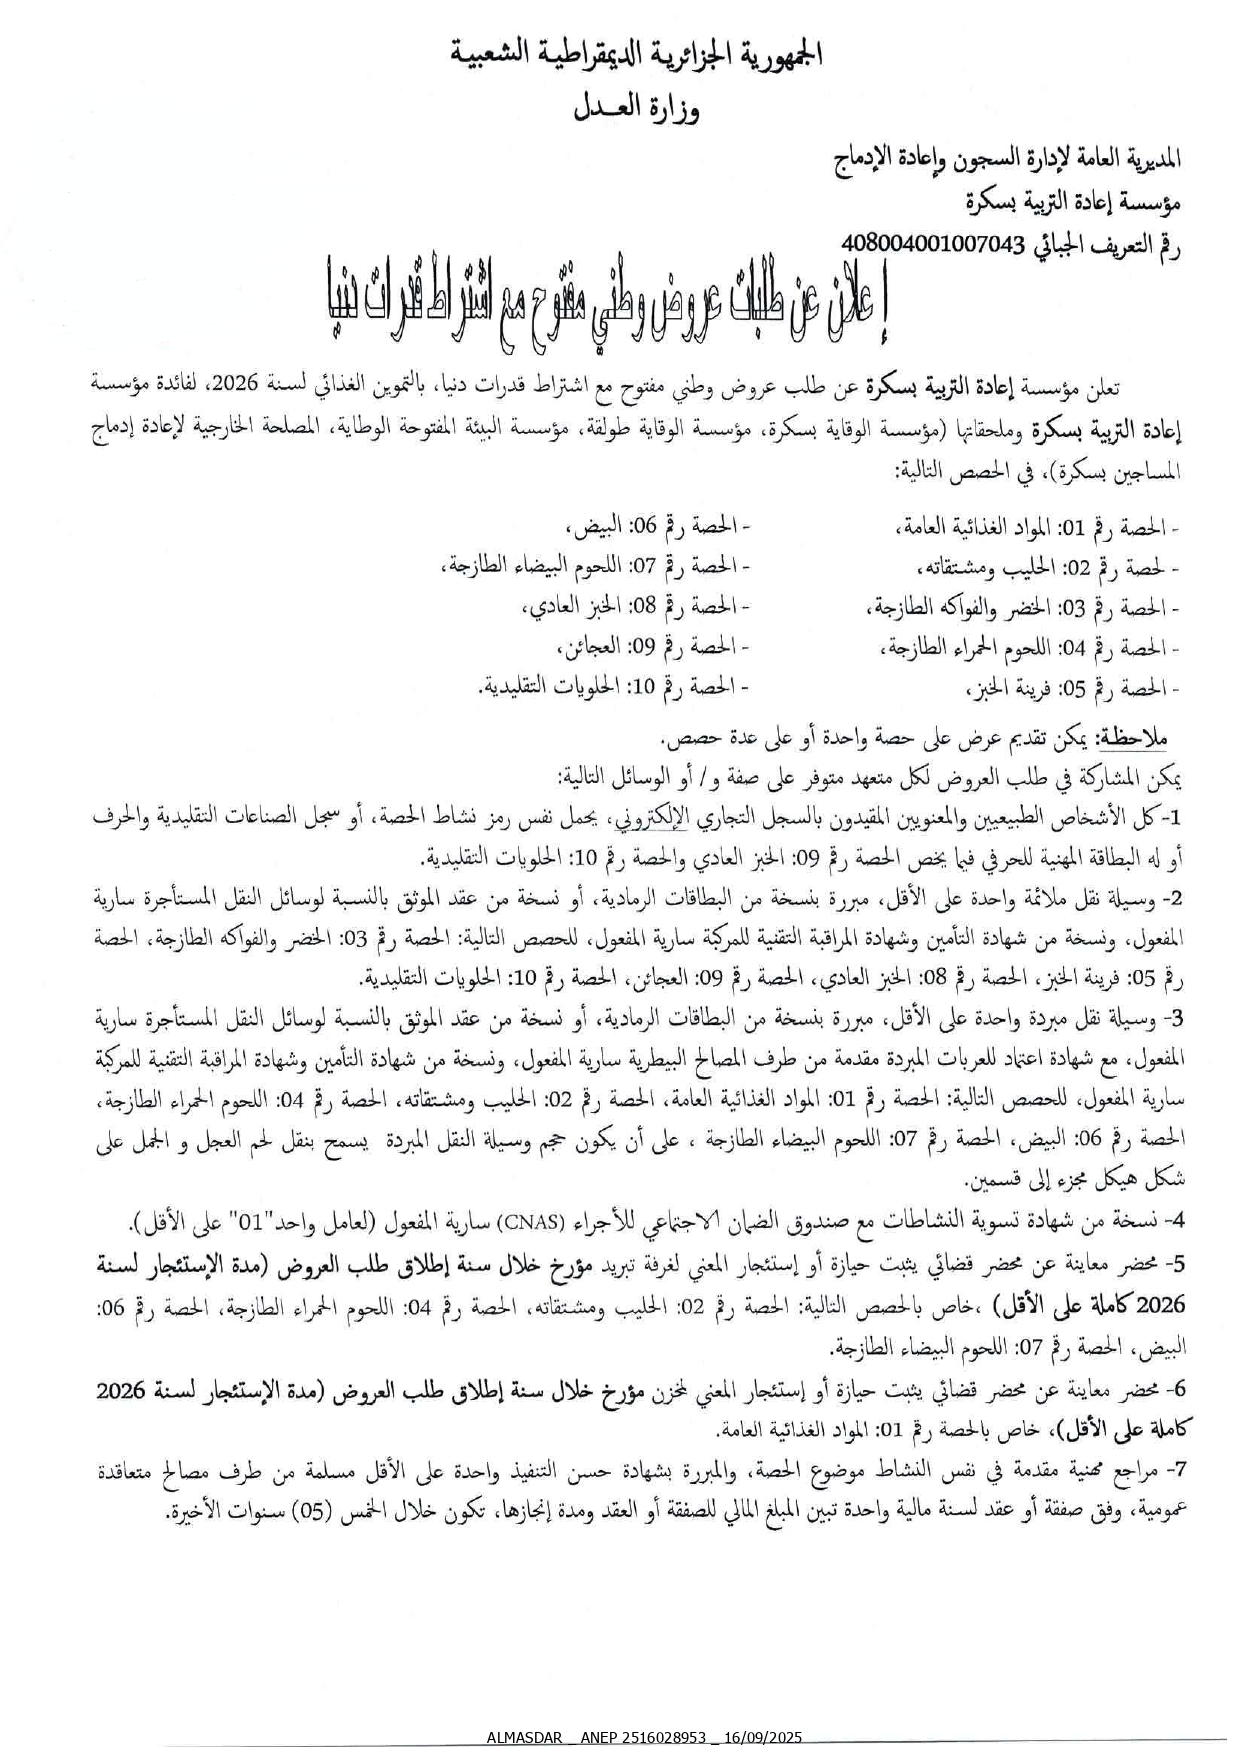 الجمهورية الجزائرية الديمقراطية الشعبية
وزارة العـدل
المديرية العامة لإدارة السجون وإعادة الإدماج
مؤسسة إعادة التربية بسكرة
رقم التعريف الجبائي 408004001007043
إعلان عن طلبات عروض وطني مفتوح مع اشتراط قدرات دنيا
تعلن مؤسسة إعادة التربية بسكرة عن طلب عروض وطني مفتوح مع اشتراط قدرات دنيا، بالتموين الغذائي لسنة 2026، لفائدة مؤسسة
إعادة التربية بسكرة وملحقاتها (مؤسسة الوقاية بسكرة، مؤسسة الوقاية طولقة، مؤسسة البيئة المفتوحة الوطاية، المصلحة الخارجية لإعادة إدماج
المساجين بسكرة)، في الحصص التالية:
- الحصة رقم 01: المواد الغذائية العامة،
- لحصة رقم 02: الحليب ومشتقاته،
- الحصة رقم 03: الخضر والفواكه الطازجة،
- الحصة رقم 04: اللحوم الحمراء الطازجة،
- الحصة رقم 05: فرينة الخبز،
- الحصة رقم 06: البيض،
- الحصة رقم 07: اللحوم البيضاء الطازجة،
- الحصة رقم 08: الخبز العادي،
- الحصة رقم 09: العجائن،
- الحصة رقم 10: الحلويات التقليدية.
ملاحظة: يمكن تقديم عرض على حصة واحدة أو على عدة حصص.
يمكن المشاركة في طلب العروض لكل متعهد متوفر على صفة و/ أو الوسائل التالية:
1- كل الأشخاص الطبيعيين والمعنويين المقيدون بالسجل التجاري الإلكتروني، يحمل نفس رمز نشاط الحصة، أو سجل الصناعات التقليدية والحرف
أو له البطاقة المهنية للحرفي فيما يخص الحصة رقم 09: الخبز العادي والحصة رقم 10: الحلويات التقليدية.
2- وسيلة نقل ملائمة واحدة على الأقل، مبررة بنسخة من البطاقات الرمادية، أو نسخة من عقد الموثق بالنسبة لوسائل النقل المستأجرة سارية
المفعول، ونسخة من شهادة التأمين وشهادة المراقبة التقنية للمركبة سارية المفعول، للحصص التالية: الحصة رقم 03: الخضر والفواكه الطازجة، الحصة
رقم 05: فرينة الخبز، الحصة رقم 08: الخبز العادي، الحصة رقم 09: العجائن، الحصة رقم 10: الحلويات التقليدية.
3- وسيلة نقل مبردة واحدة على الأقل، مبررة بنسخة من البطاقات الرمادية، أو نسخة من عقد الموثق بالنسبة لوسائل النقل المستأجرة سارية
المفعول، مع شهادة اعتماد للعربات المبردة مقدمة من طرف المصالح البيطرية سارية المفعول، ونسخة من شهادة التأمين وشهادة المراقبة التقنية للمركبة
سارية المفعول، للحصص التالية: الحصة رقم 01: المواد الغذائية العامة، الحصة رقم 02: الحليب ومشتقاته، الحصة رقم 04: اللحوم الحمراء الطازجة،
الحصة رقم 06: البيض، الحصة رقم 07: اللحوم البيضاء الطازجة ، على أن يكون حجم وسيلة النقل المبردة يسمح بنقل لحم العجل و الجمل على
شكل هيكل مجزء إلى قسمين.
4- نسخة من شهادة تسوية النشاطات مع صندوق الضمان الاجتماعي للأجراء (CNAS) سارية المفعول (لعامل واحد"01" على الأقل).
5- محضر معاينة عن محضر قضائي يثبت حيازة أو إستئجار المعني لغرفة تبريد مؤرخ خلال سنة إطلاق طلب العروض (مدة الإستئجار لسنة
2026 كاملة على الأقل) ،خاص بالحصص التالية: الحصة رقم 02: الحليب ومشتقاته، الحصة رقم 04: اللحوم الحمراء الطازجة، الحصة رقم 06:
البيض، الحصة رقم 07: اللحوم البيضاء الطازجة.
6- محضر معاينة عن محضر قضائي يثبت حيازة أو إستئجار المعني لمخزن مؤرخ خلال سنة إطلاق طلب العروض (مدة الإستئجار لسنة 2026
كاملة على الأقل)، خاص بالحصة رقم 01: المواد الغذائية العامة.
7- مراجع مهنية مقدمة في نفس النشاط موضوع الحصة، والمبررة بشهادة حسن التنفيذ واحدة على الأقل مسلمة من طرف مصالح متعاقدة
عمومية، وفق صفقة أو عقد لسنة مالية واحدة تبين المبلغ المالي للصفقة أو العقد ومدة إنجازها، تكون خلال الخمس (05) سنوات الأخيرة.
ALMASDAR _ ANEP 2516028953 _ 16/09/2025